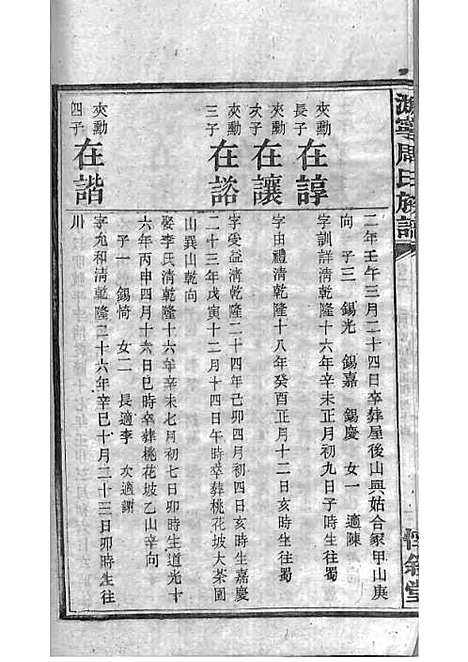 寧周氏族譜
二年壬午三月二十四日卒葬屋後山與姑合冢甲山庚
向 子三 錫光 錫嘉 錫慶 女一 適陳
夾勳長子 在諄 字訓詳清乾隆十六年辛未正月初九日子時生往蜀
夾勳次子 在讓 字由禮清乾隆十八年癸酉正月十二日亥時生往蜀
夾勳三子 在谘 字受益清乾隆二十四年己卯四月初四日亥時生嘉慶
二十三年戊寅十二月十四日午時卒葬桃花坡大茶園
山巽山乾向
娶李氏清乾隆十六年辛未七月初七日卯時生道光十
六年丙申四月十六日巳時卒葬桃花坡乙山辛向
子一 錫犄 女二 長適李 次適謝
夾勳四子 在諧 字允和清乾隆三十六年辛巳十月二十三日卯時生往
川
敘堂